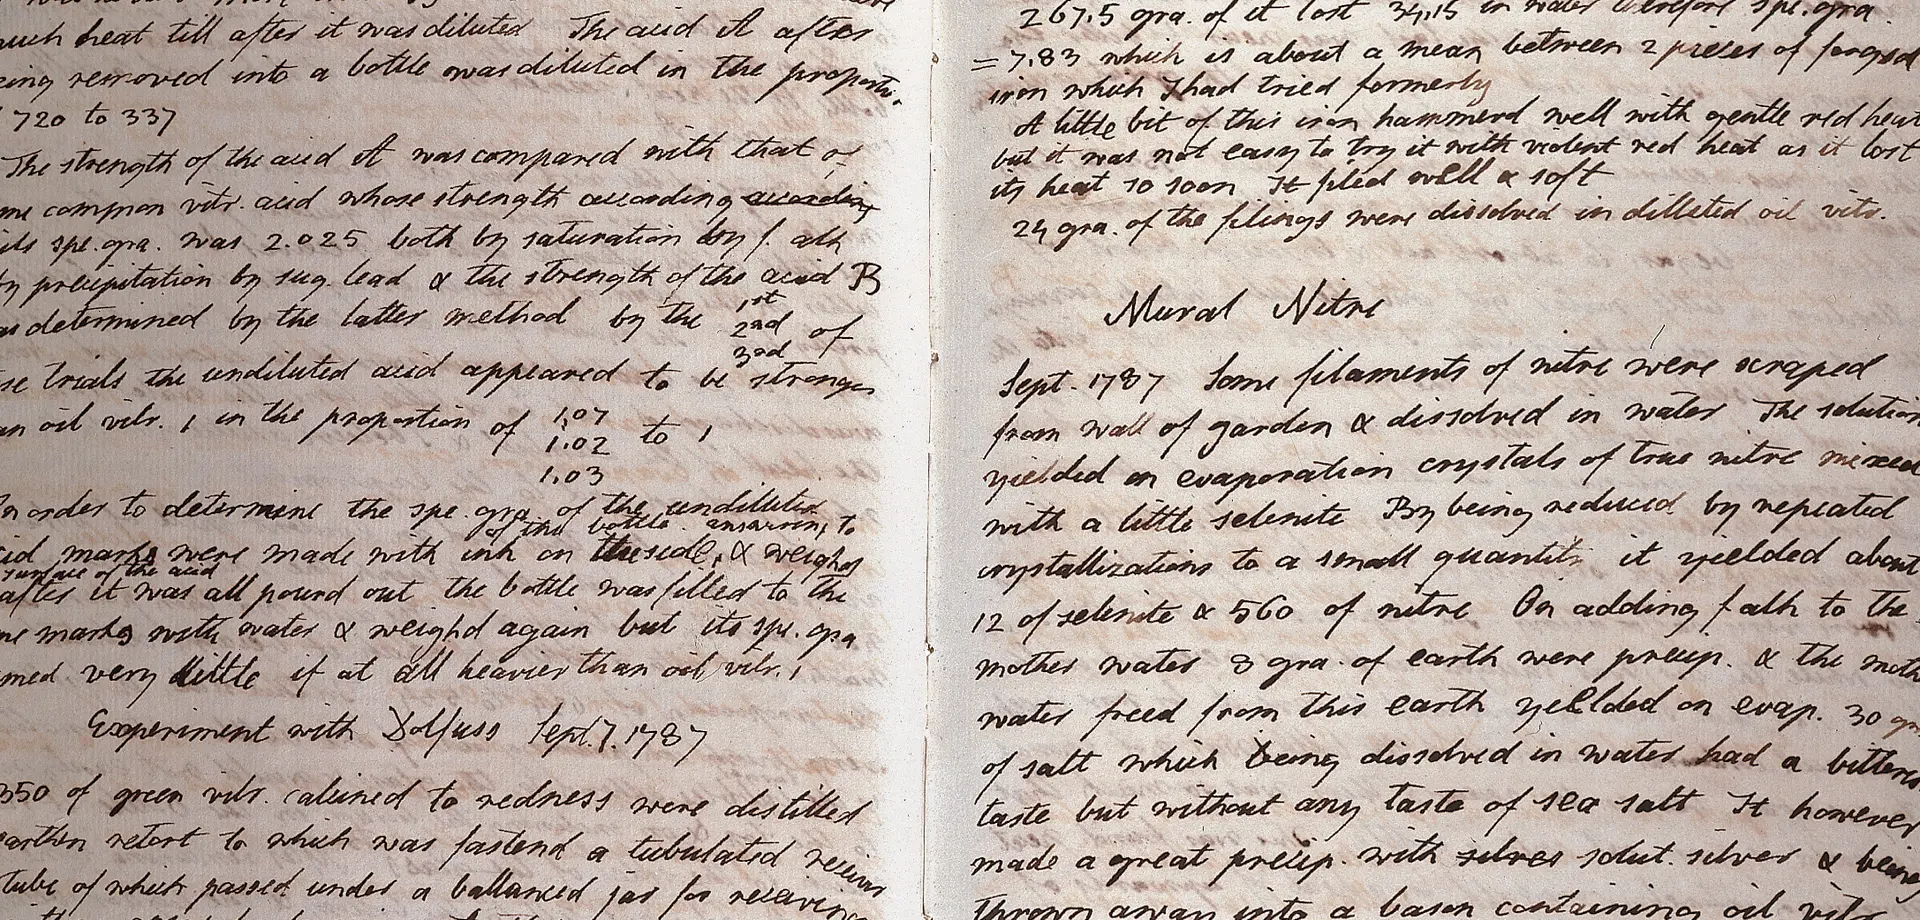 much heat till after it was diluted The acid A after
being removed into a bottle was diluted in the proportio.
720 to 337
The strength of the acid A was compared with that of
common vitr. acid whose strength according according
its spe. gra. was 2.025 both by saturation by f. alk
by precipitation by sug. lead & the strength of the acid B
was determined by the latter method by the 1st 2nd 3rd of
trials the undiluted acid appeared to be stronger
than oil vitr. 1 in the proportion of 1,07 1.02 1.03 to 1
In order to determine the spe. gra of the undiluted
of the bottle answering to
acid marks were made with ink on the side, & weighd
surface of the acid
after it was all pourd out the bottle was filled to the
marks with water & weighd again but its spe. gra
seemed very little if at all heavier than oil vitr. 1
Experiment with Dolfuss Sept. 7. 1787
350 of green vitr. calcined to redness were distilled
earthen retort to which was fastend a tubulated receiver
tube of which passed under a ballanced jar for receiving
267,5 gra. of it lost 34,15 in water therefore spe. gra.
= 7.83 which is about a mean between 2 pieces of forged
iron which I had tried formerly
A little bit of this iron hammerd well with gentle red heat
but it was not easy to try it with violent red heat as it lost
its heat so soon It filed well & soft
24 gra. of the filings were dissolved in dilleted oil vitr.
Mural Nitre
Sept. 1787 Some filaments of nitre were scraped
from wall of garden & dissolved in water The solution
yielded on evaporation crystals of true nitre mixed
with a little selenite By being reduced by repeated
crystallizations to a small quantity it yielded about
12 of selenite & 560 of nitre On adding f alk to the
mother water 8 gra. of earth were precip. & the moth
water freed from this earth yeilded on evap. 30 gr
of salt which being dissolved in water had a bitterish
taste but without any taste of sea salt It however
made a great precip. with silver solut. silver & being
thrown away into a bason containing oil vitr